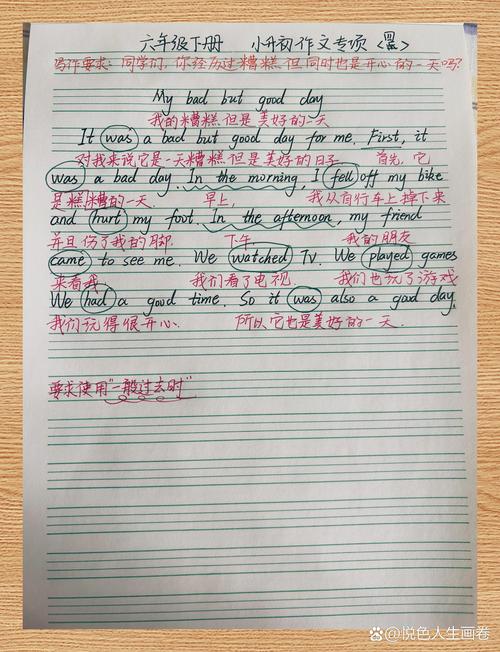 六年级下册 小升初作文专项〈四〉
写作要求：同学们，你经历过糟糕但同时也是开心的一天吗？
My bad but good day
我的糟糕但是美好的一天
It was a bad but good day for me. First, it
对我来说它是一天糟糕但是美好的日子 首先，它
was a bad day. In the morning, I fell off my bike
是糟糕的一天 早上， 我从自行车上掉下来
and hurt my foot. In the afternoon, my friend
并且伤了我的脚 下午 我的朋友
came to see me. We watched TV. We played games
来看我 我们看了电视 我们也玩了游戏
We had a good time. So it was also a good day.
我们玩得很开心. 所以它也是美好的一天.
要求使用"一般过去时"
悦色人生画卷